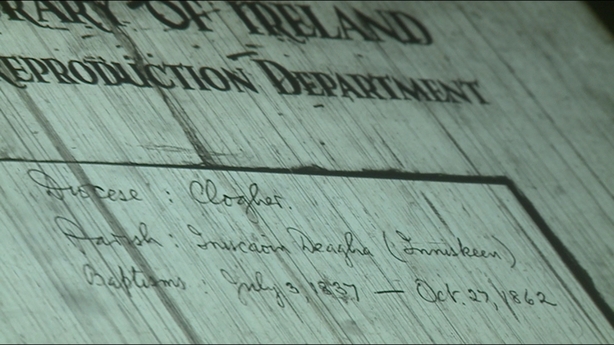 RARY OF IRELAND
REPRODUCTION DEPARTMENT
Diocese : Clogher.
Parish : Iniscaoin Deagha (Inniskeen)
Baptisms : July 3, 1837 — Oct. 27, 1862